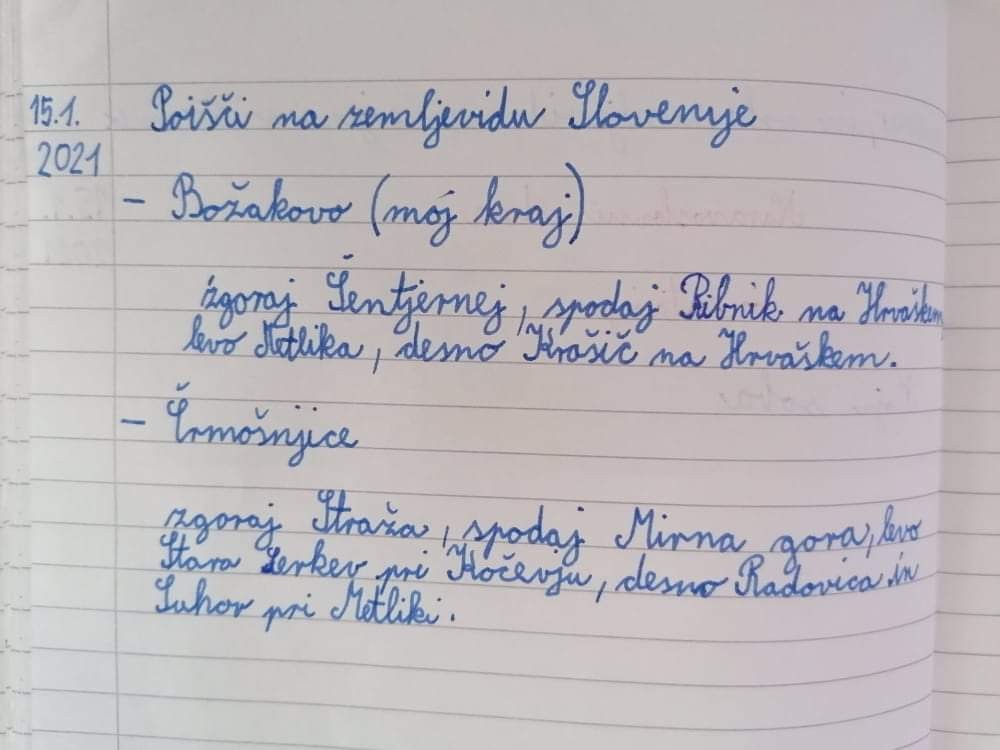 15.1. Poišči na zemljevidu Slovenije
2021
- Božakovo (moj kraj)
zgoraj Šentjernej, spodaj Ribnik na Hrvaškem,
levo Metlika, desno Krašič na Hrvaškem.
- Črmošnjice
zgoraj Straža, spodaj Mirna gora, levo
Stara Cerkev pri Kočevju, desno Radovica in
Suhor pri Metliki.